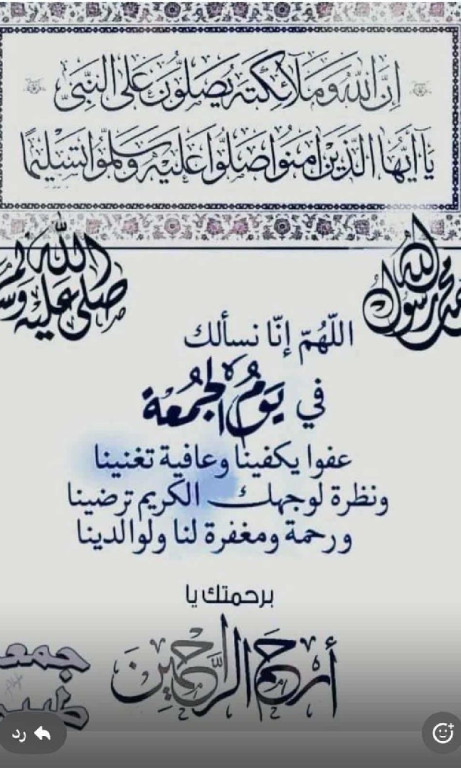 إن الله وملائكته يصلون على النبي
يا أيها الذين آمنوا صلوا عليه وسلموا تسليما
محمد رسول الله
صلى الله عليه وسلم
اللّهُم إنّا نسألك
في يَومُ الجُمعة
عفوا يكفينا وعافية تغنينا
ونظرة لوجهك الكريم ترضينا
ورحمة ومغفرة لنا ولوالدينا
برحمتك يا
أرحم الراحمين
جمعة
طيبة
رد